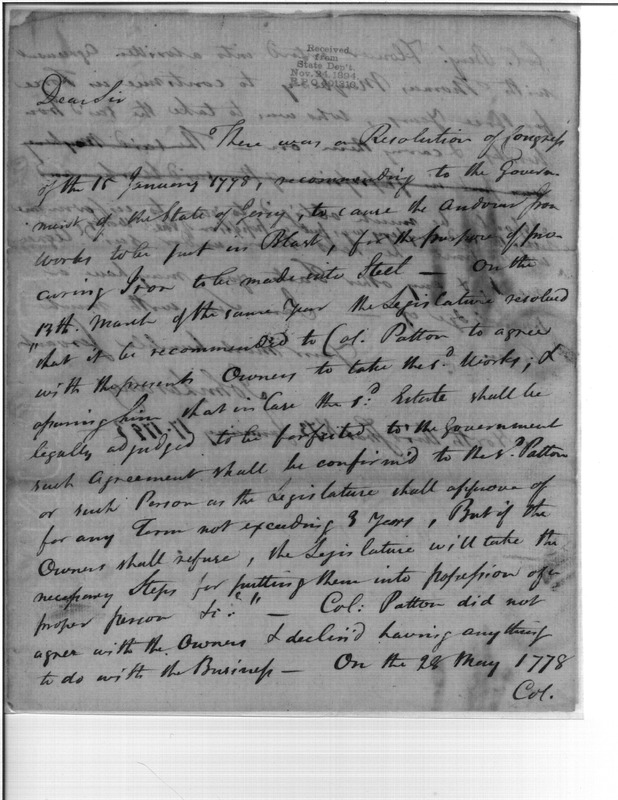 Received
from
State Dep't.
Nov. 24, 1894.
R.P.O. 401216.
Dear Sir
There was a Resolution of Congress
of the 15 January 1778, recommending to the Govern-
ment of the State of Jersey, to cause the Andover Iron
works to be put in Blast, for the purpose of pro-
curing Iron to be made into Steel — On the
13th. March of the same Year the Legislature resolved
"that it be recommended to Col. Patton to agree
with the presents Owners to take the sd. Works; &
assuring him that in Case the sd. Estate shall be
legally adjudged to be forfeited to the Government
such Agreement shall be confirm'd to the sd. Patton
or such Person as the Legislature shall approve of
for any Term not exceeding 3 Years, But if the
Owners shall refuse, the Legislature will take the
necessary Steps for putting them into possession of a
proper person &c." — Col: Patton did not
agree with the Owners & declin'd having anything
to do with the Business — On the 28 May 1778
Col.